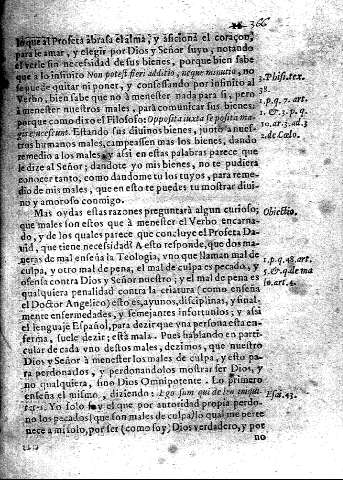 366
lo que al Profeta abrasa el alma, y aficiona el coraçon,
para le amar, y elegir por Dios y Señor suyo, notando
el verle sin necessidad de sus bienes, porque bien sabe
que a lo infinito Non potest fieri additio, neque minutio, no
se puede quitar ni poner, y confessando por infinito al
Verbo, bien sabe que no à menester nada para si, pero
à menester nuestros males, para comunicar sus bienes,
porque como dixo el Filosofo: Opposita iuxta se posita ma-
gis elucescunt. Estando sus diuinos bienes, junto a nues-
tros humanos males, campeassen mas los bienes, dando
remedio a los males, y assi en estas palabras parece que
le dize al Señor; dandote yo mis bienes, no te pudiera
conocer tanto, como dandome tu los tuyos, para reme-
dio de mis males, que en esto te puedes tu mostrar diui-
no y amoroso conmigo.
Mas oydas estas razones preguntarà algun curioso;
que males son estos que à menester el Verbo encarna-
do, y de los quales parece que concluye el Profeta Da-
uid, que tiene necessidad? A esto responde, que dos ma-
neras de mal enseña la Teologia, vno que llaman mal de
culpa, y otro mal de pena, el mal de culpa es pecado, y
ofensa contra Dios y Señor nuestro; y el mal de pena es
qualquiera penalidad contra la criatura (como enseña
el Doctor Angelico) esto es, ayunos, disciplinas, y final-
mente enfermedades, y semejantes infortunios; y assi
el lenguaje Español, para dezir que vna persona esta en-
ferma, suele dezir; està mala. Pues hablando en parti-
cular de cada vno destos males, dezimos, que nuestro
Dios y Señor à menester los males de culpa, y esto pa-
ra perdonarlos, y perdonandolos mostrar ser Dios, y
no qualquiera, sino Dios Omnipotente. Lo primero
enseña el mismo, diziendo: Ego sum qui deleo iniqui-
tates. Yo solo soy el que por autoridad propia perdo-
no los pecados (que son males de culpa) lo qual me perte
nece a mi solo, por ser (como soy) Dios verdadero, y por
no
3. Phisi. tex.
38.
1. p. q. 7. art.
1. & 3. p. q.
10. ar. 3. ad. 3
2. de Cœlo.
Obiectio.
1. p. q. 48. art.
5. & q. de ma
lo. art. 4.
Esai. 43.